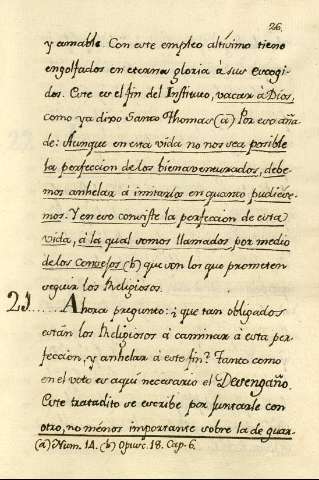 26.
y amable. Con este empleo altísimo tiene
engolfados en eterna gloria à sus escogi-
dos. Este es el fin del Instituto, vacar à Dios,
como ya dixo Santo Thomas (a) Por eso aña-
de: Aunque en esta vida no nos sea posible
la perfeccion de los bienaventurados, debe-
mos anhelar à imitarlos en quanto pudiére-
mos. Y en eso consiste la perfeccion de esta
vida, à la qual somos llamados por medio
de los consejos (b) que son los que prometen
seguir los Religiosos.
21...... Ahora pregunto: ¿que tan obligados
están los Religiosos à caminar à esta per-
feccion, y anhelar à este fin? Tanto como
en el voto es aquí necesario el Desengaño.
Este tratadito se escribe por juntarle con
otro, no ménos importante sobre la de guar-
(a) Num. 14. (b) Opusc. 18. Cap. 6.